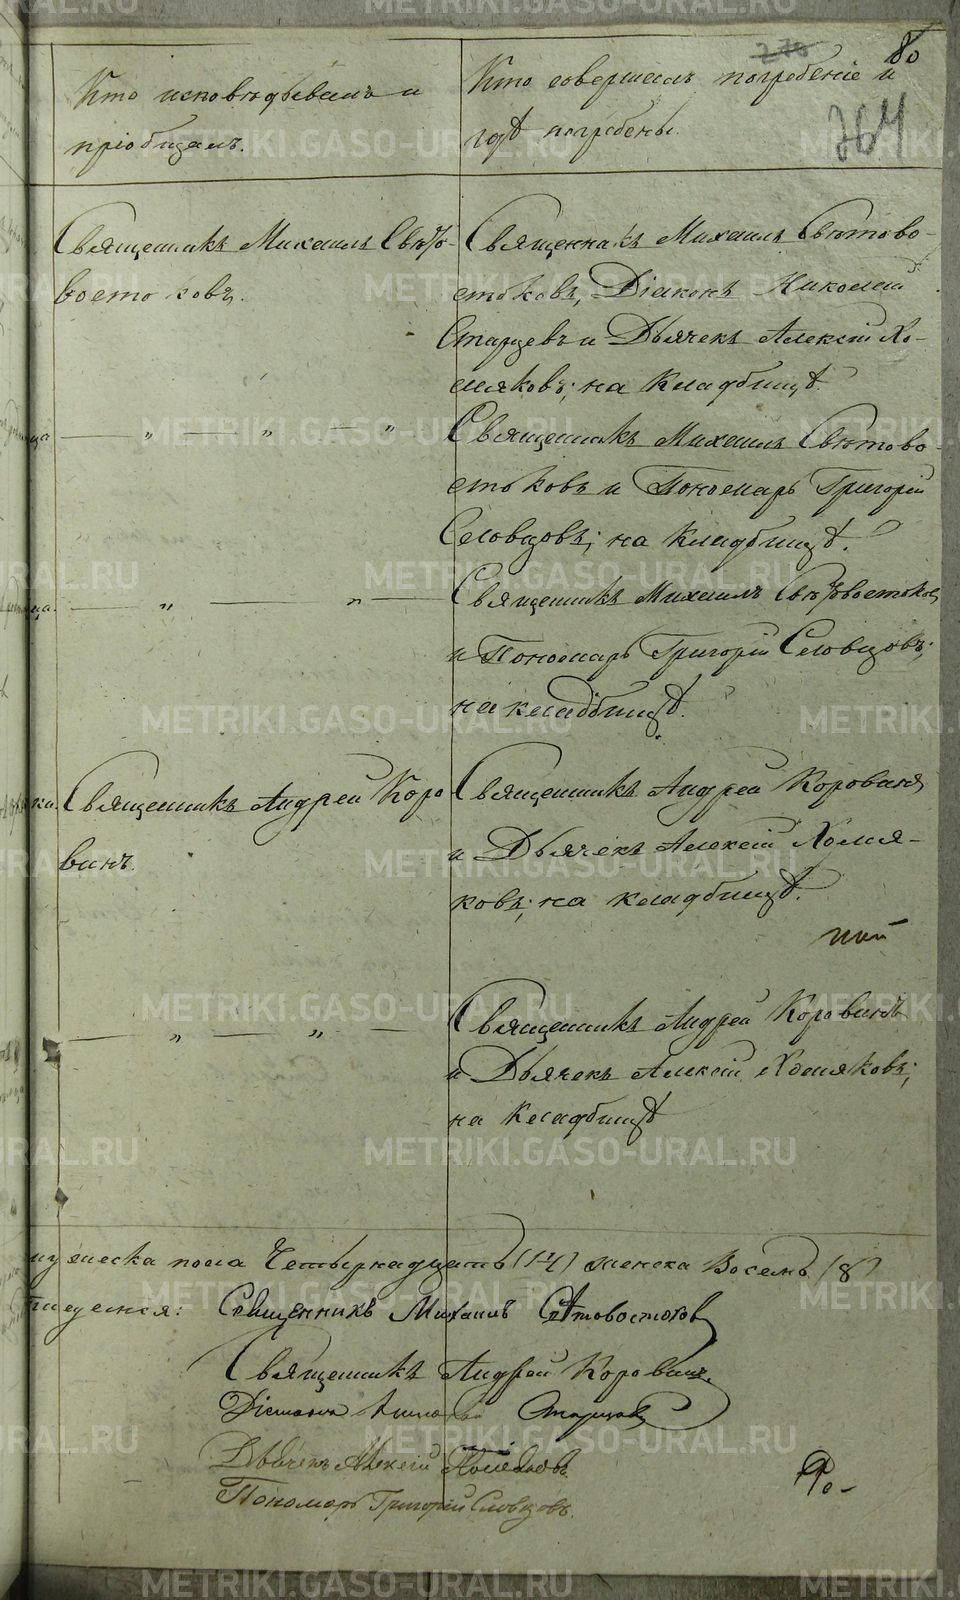 80
270
264
Кто исповѣдывалъ и
пріобщалъ.
Кто совершалъ погребеніе и
гдѣ погребены.
Священникъ Михаилъ Свѣто-
востоковъ.
Священникъ Михаилъ Свѣтово-
стоковъ, Діаконъ Николай
Старцевъ и Дьячекъ Алексій Хо-
мяковъ; на кладбищѣ.
ца — „ — „ — „
Священникъ Михаилъ Свѣтово-
стоковъ и Пономарь Григорій
Словцовъ; на кладбищѣ.
ца. — „ — „ —
Священникъ Михаилъ Свѣтовостоковъ
и Пономарь Григорій Словцовъ;
на кладбищѣ.
ка. Священникъ Андрей Коро
винъ.
Священникъ Андрей Коровинъ
и Дьячекъ Алексій Хомя-
ковъ; на кладбищѣ.
— „ — „ —
Священникъ Андрей Коровинъ
и Дьячекъ Алексій Хомяковъ;
на кладбищѣ
мужеска пола Четырнадцать (14) женска Восемь (8)
Священникъ Михаилъ Свѣтовостоковъ
Священникъ Андрей Коровинъ.
Діаконъ Николай Старцевъ
Дьячекъ Алексій Хомяковъ
Пономарь Григорій Словцовъ.